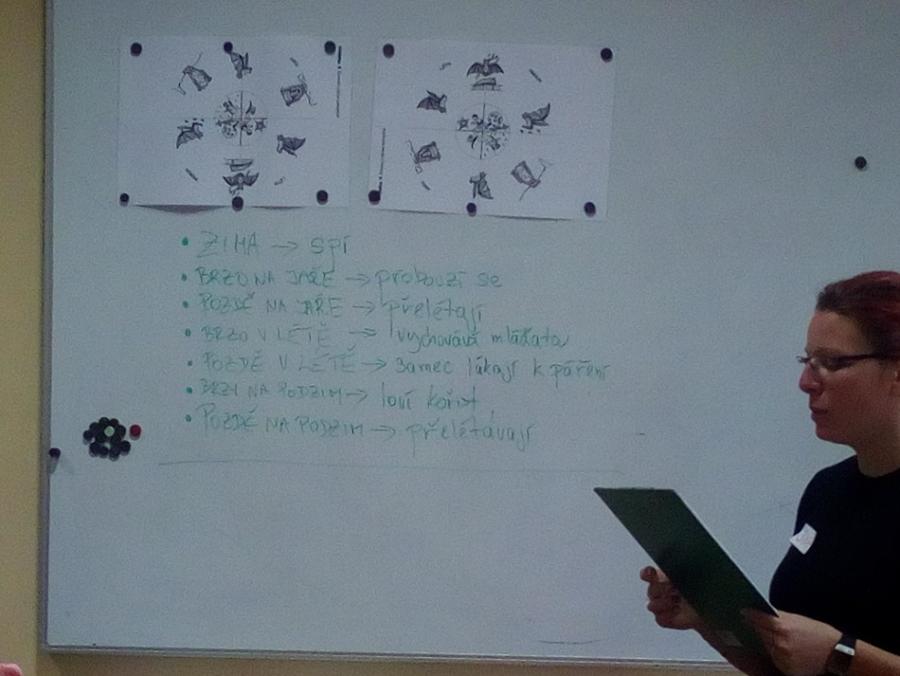 • ZIMA → spí
• BRZO NA JAŘE → probouzí se
• POZDĚ NA JAŘE → přelétají
• BRZO V LÉTĚ → vychovává mláďata
• POZDĚ V LÉTĚ → samec lákají k páření
• BRZY NA PODZIM → loví kořist
• POZDĚ NA PODZIM → přelétávají